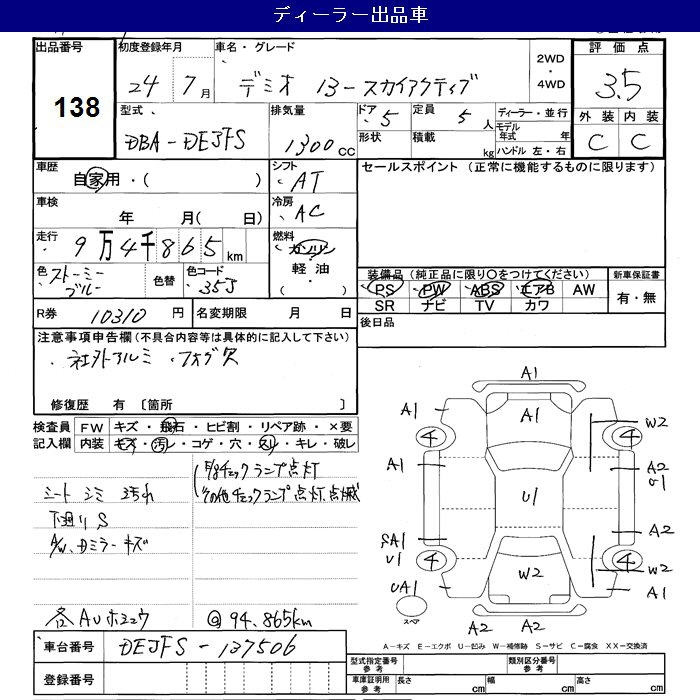 ディーラー出品車
出品番号 初度登録年月 車名・グレード 2WD・4WD 評価点
138 24 7月 デミオ 13-スカイアクティブ 3.5
型式 排気量 ドア 定員 ディーラー・並行 外装 内装
DBA-DEJFS 1300cc 5 5人 モデル年式 年 C C
形状 積載 kg ハンドル 左・右
車歴 自家用・( ) シフト AT セールスポイント (正常に機能するものに限ります)
車検 年 月( 日) 冷房 AC
走行 9万4千865km 燃料 ガソリン
軽油
( )
色 ストーミーブルー 色替 色コード 35J
装備品(純正品に限り○をつけてください) 新車保証書
PS PW ABS エアB AW 有・無
SR ナビ TV カワ
R券 10310円 名変期限 月 日 後日品
注意事項申告欄(不具合内容等は具体的に記入して下さい)
社外アルミ フォグ欠
修復歴 有 〔箇所 〕
検査員 FW キズ・飛石・ヒビ割・リペア跡・×要
記入欄 内装 キズ・汚レ・コゲ・穴・スレ・キレ・破レ
チェックランプ点灯
シート シミ 汚れ その他チェックランプ点灯、点滅
下廻りS
A/W、ドミラーキズ
各AUホコウ @94,865km
車台番号 DEJFS-137506
登録番号
A1
A1 A1 W2
4 4
A1 A2
U1 U1
SA1 A2
U1
4 4
W2 W2
UA1 A1
スペア A2 A2
A-キズ E-エクボ U-凹み W-補修跡 S-サビ C-腐食 XX-交換済
型式指定番号 参考 類別区分番号 参考
車庫証明用 参考 長さ cm 幅 cm 高さ cm